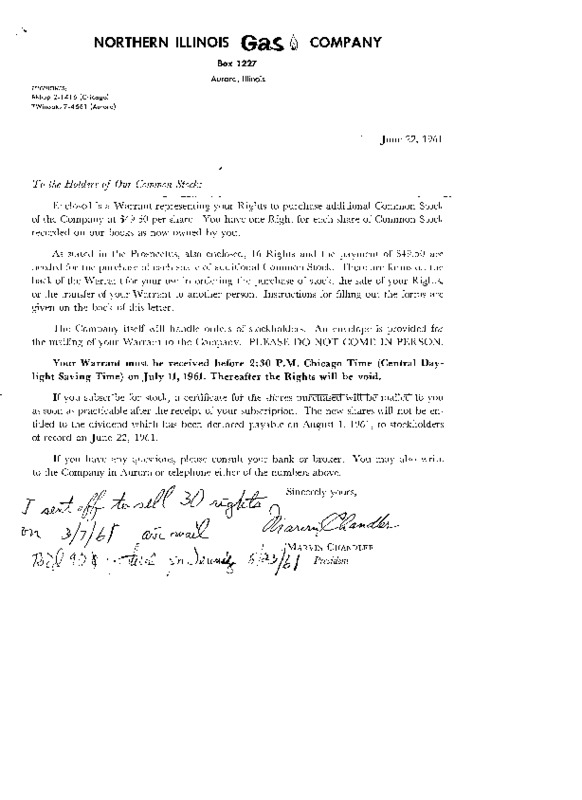 NORTHERN ILLINOIS Gas COMPANY
Box 1227
Aurora, Illinois
TELEPHONES:
2-1416 (Chicago)
TWinoaks 7-4661 (Aurora)
June 22, 1961
To the Holders of Our Common Stock:
Enclosed is a Warrant representing your Rights to purchase additional Common Stock
of the Company at $49.50 per share. You have one Right for each share of Common Stock
recorded on our books as now owned by you.
As stated in the Prospectus, also enclosed, 16 Rights and the payment of $49.50 are
needed for the purchase of each share of additional Common Stock. There are forms on the
back of the Warrant for your use in ordering the purchase of stock, the sale of your Rights,
or the transfer of your Warrant to another person. Instructions for filling out the forms are
given on the back of this letter.
The Company itself will handle orders of stockholders. An envelope is provided for
the mailing of your Warrant to the Company. PLEASE DO NOT COME IN PERSON.
Your Warrant must be received before 2:30 P.M. Chicago Time (Central Day-
light Saving Time) on July 11, 1961. Thereafter the Rights will be void.
If you subscribe for stock, a certificate for the shares purchased will be mailed to you
as soon as practicable after the receipt of your subscription. The new shares will not be en-
titled to the dividend which has been declared payable on August 1, 1961, to stockholders
of record on June 22, 1961.
If you have any questions, please consult your bank or broker. You may also write
to the Company in Aurora or telephone either of the numbers above.
Sincerely yours,
I sent off to sell 30 rights
on 3/7/61 air mail
Marvin Chandler
MARVIN CHANDLER
President